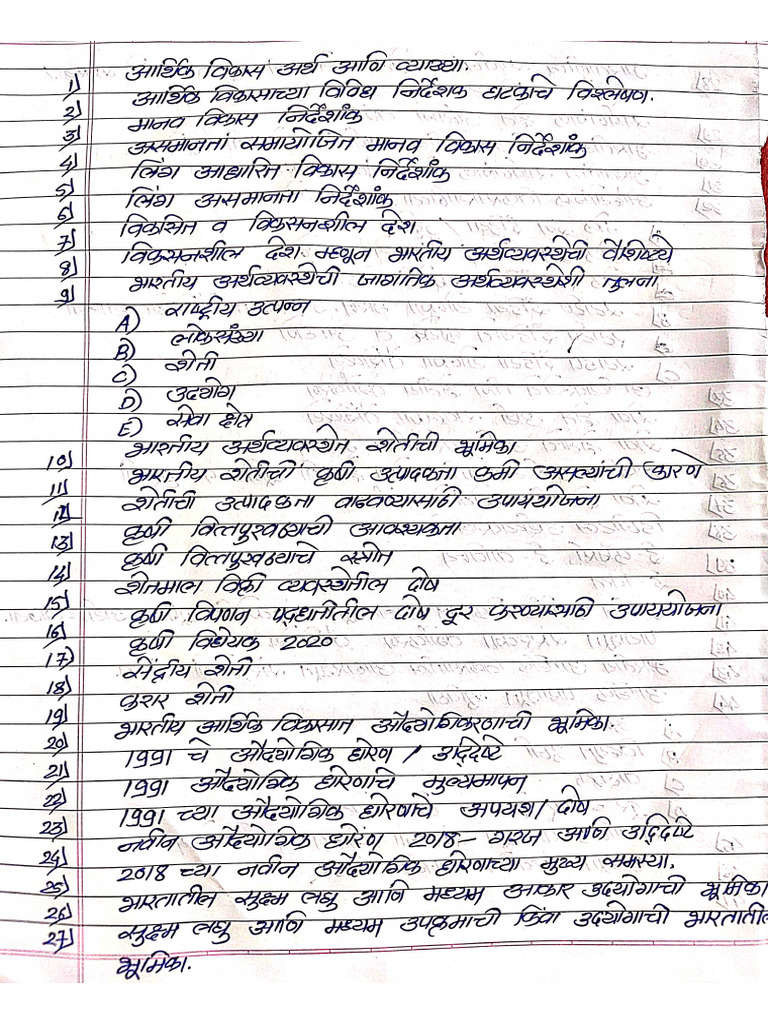 1) आर्थिक विकास अर्थ आणि व्याख्या.
2) आर्थिक विकासाच्या विविध निर्देशक घटकांचे विश्लेषण.
3) मानव विकास निर्देशांक
4) असमानता समायोजित मानव विकास निर्देशांक
5) लिंग आधारित विकास निर्देशांक
6) लिंग असमानता निर्देशांक
7) विकसित व विकसनशील देश.
8) विकसनशील देश म्हणून भारतीय अर्थव्यवस्थेची वैशिष्ट्ये
9) भारतीय अर्थव्यवस्थेची जागतिक अर्थव्यवस्थेशी तुलना
A) राष्ट्रीय उत्पन्न
B) लोकसंख्या
C) शेती
D) उदयोग
E) सेवा क्षेत्र
10) भारतीय अर्थव्यवस्थेत शेतीची भूमिका
11) भारतीय शेतीची कृषी उत्पादकता कमी असल्यांची कारणे
12) शेतीची उत्पादकता वाढवण्यासाठी उपाययोजना
13) कृषी वित्तपुरवठ्याची आवश्यकता
14) कृषी वित्तपुरवठ्याचे स्त्रोत
15) शेतमाल विक्री व्यवस्थेतील दोष
16) कृषी विपणन पद्धतीतील दोष दूर करण्यांसाठी उपाययोजना
17) कृषी विधेयक 2020
18) सेंद्रीय शेती
19) करार शेती
20) भारतीय आर्थिक विकासात औदयोगिकरणाची भूमिका.
21) 1991 चे औदयोगिक धोरण / उद्दिष्टे
22) 1991 औदयोगिक धोरणाचे मुल्यमापन
23) 1991 च्या औदयोगिक धोरणाचे अपयश/ दोष
24) नवीन औदयोगिक धोरण 2018 - गरज आणि उद्दिष्टे
25) 2018 च्या नवीन औदयोगिक धोरणाच्या मुख्य समस्या.
26) भारतातील सुक्ष्म लघु आणि मध्यम आकार उदयोगाची भूमिका
27) सुक्ष्म लघु आणि मध्यम उपक्रमाची किंवा उदयोगाची भारतातील
भूमिका.